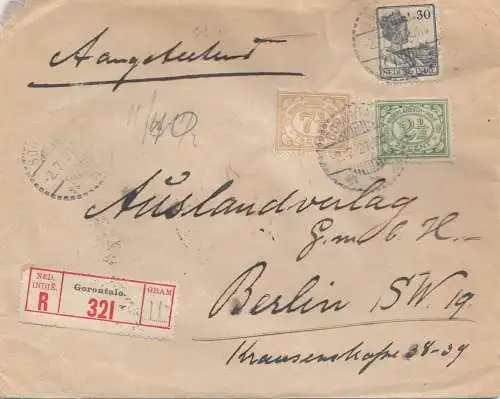 Aangetekend
30
NED. INDIE
7½
CENT
2½
CENT
11/
Auslandverlag
G. m. b. H.
Berlin SW. 19.
Krausenstraße 38-39
NED.
INDIË.
Gorontalo.
GRAM
R
321
11